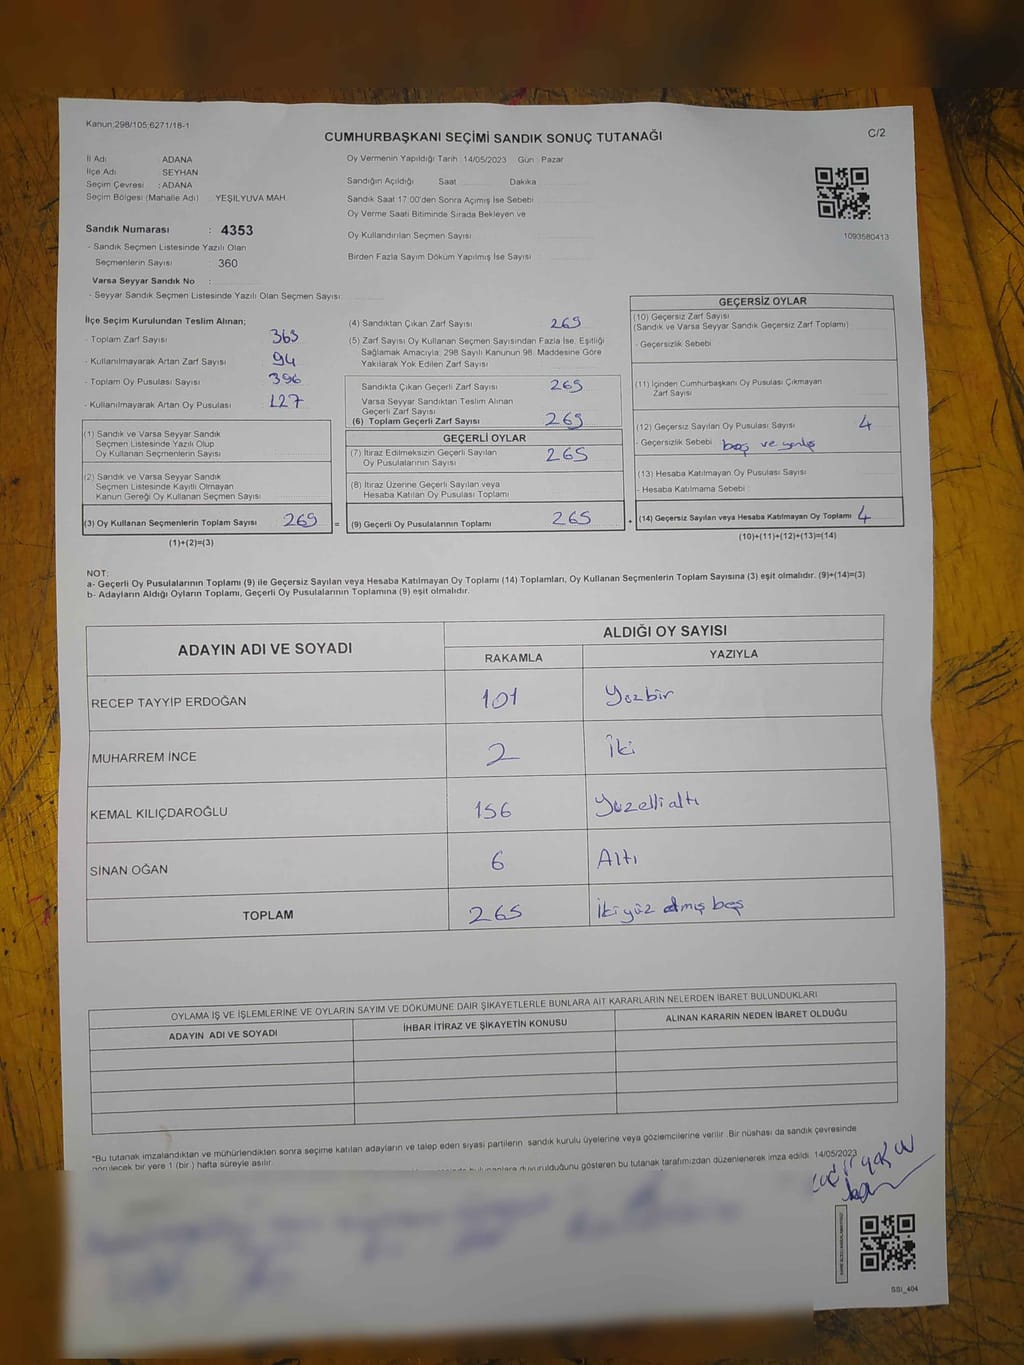 Kanun:298/105;6271/18-1
CUMHURBAŞKANI SEÇİMİ SANDIK SONUÇ TUTANAĞI
C/2
İl Adı ADANA
İlçe Adı SEYHAN
Seçim Çevresi : ADANA
Seçim Bölgesi (Mahalle Adı) YEŞİLYUVA MAH.
Sandık Numarası : 4353
- Sandık Seçmen Listesinde Yazılı Olan
Seçmenlerin Sayısı : 360
Varsa Seyyar Sandık No :
- Seyyar Sandık Seçmen Listesinde Yazılı Olan Seçmen Sayısı:
Oy Vermenin Yapıldığı Tarih : 14/05/2023 Gün : Pazar
Sandığın Açıldığı Saat Dakika
Sandık Saat 17:00'den Sonra Açımış İse Sebebi
Oy Verme Saati Bitiminde Sırada Bekleyen ve
Oy Kullandırılan Seçmen Sayısı
Birden Fazla Sayım Döküm Yapılmış İse Sayısı
1093580413
İlçe Seçim Kurulundan Teslim Alınan;
- Toplam Zarf Sayısı 363
- Kullanılmayarak Artan Zarf Sayısı 94
- Toplam Oy Pusulası Sayısı 396
- Kullanılmayarak Artan Oy Pusulası 127
(1) Sandık ve Varsa Seyyar Sandık
Seçmen Listesinde Yazılı Olup
Oy Kullanan Seçmenlerin Sayısı
(2) Sandık ve Varsa Seyyar Sandık
Seçmen Listesinde Kayıtlı Olmayan
Kanun Gereği Oy Kullanan Seçmen Sayısı
(3) Oy Kullanan Seçmenlerin Toplam Sayısı 269 =
(1)+(2)=(3)
(4) Sandıktan Çıkan Zarf Sayısı 269
(5) Zarf Sayısı Oy Kullanan Seçmen Sayısından Fazla İse, Eşitliği
Sağlamak Amacıyla; 298 Sayılı Kanunun 98. Maddesine Göre
Yakılarak Yok Edilen Zarf Sayısı
Sandıkta Çıkan Geçerli Zarf Sayısı 269
Varsa Seyyar Sandıktan Teslim Alınan
Geçerli Zarf Sayısı
(6) Toplam Geçerli Zarf Sayısı 269
GEÇERLİ OYLAR
(7) İtiraz Edilmeksizin Geçerli Sayılan
Oy Pusulalarının Sayısı 265
(8) İtiraz Üzerine Geçerli Sayılan veya
Hesaba Katılan Oy Pusulası Toplamı
(9) Geçerli Oy Pusulalarının Toplamı 265 +
GEÇERSİZ OYLAR
(10) Geçersiz Zarf Sayısı
(Sandık ve Varsa Seyyar Sandık Geçersiz Zarf Toplamı)
- Geçersizlik Sebebi
(11) İçinden Cumhurbaşkanı Oy Pusulası Çıkmayan
Zarf Sayısı
(12) Geçersiz Sayılan Oy Pusulası Sayısı 4
- Geçersizlik Sebebi boş ve yanlış
(13) Hesaba Katılmayan Oy Pusulası Sayısı
- Hesaba Katılmama Sebebi
(14) Geçersiz Sayılan veya Hesaba Katılmayan Oy Toplamı 4
(10)+(11)+(12)+(13)=(14)
NOT:
a- Geçerli Oy Pusulalarının Toplamı (9) ile Geçersiz Sayılan veya Hesaba Katılmayan Oy Toplamı (14) Toplamları, Oy Kullanan Seçmenlerin Toplam Sayısına (3) eşit olmalıdır. (9)+(14)=(3)
b- Adayların Aldığı Oyların Toplamı, Geçerli Oy Pusulalarının Toplamına (9) eşit olmalıdır.
ADAYIN ADI VE SOYADI ALDIĞI OY SAYISI
RAKAMLA YAZIYLA
RECEP TAYYİP ERDOĞAN 101 Yüzbir
MUHARREM İNCE 2 İki
KEMAL KILIÇDAROĞLU 156 Yüzellialtı
SİNAN OĞAN 6 Altı
TOPLAM 265 İkiyüz atmış beş
OYLAMA İŞ VE İŞLEMLERİNE VE OYLARIN SAYIM VE DÖKÜMÜNE DAİR ŞİKAYETLERLE BUNLARA AİT KARARLARIN NELERDEN İBARET BULUNDUKLARI
ADAYIN ADI VE SOYADI İHBAR İTİRAZ VE ŞİKAYETİN KONUSU ALINAN KARARIN NEDEN İBARET OLDUĞU
*Bu tutanak imzalandıktan ve mühürlendikten sonra seçime katılan adayların ve talep eden siyasi partilerin sandık kurulu üyelerine veya gözlemcilerine verilir. Bir nüshası da sandık çevresinde
görülecek bir yere 1 (bir ) hafta süreyle asılır.
duyurulduğunu gösteren bu tutanak tarafımızdan düzenlenerek imza edildi. 14/05/2023
GSI_404